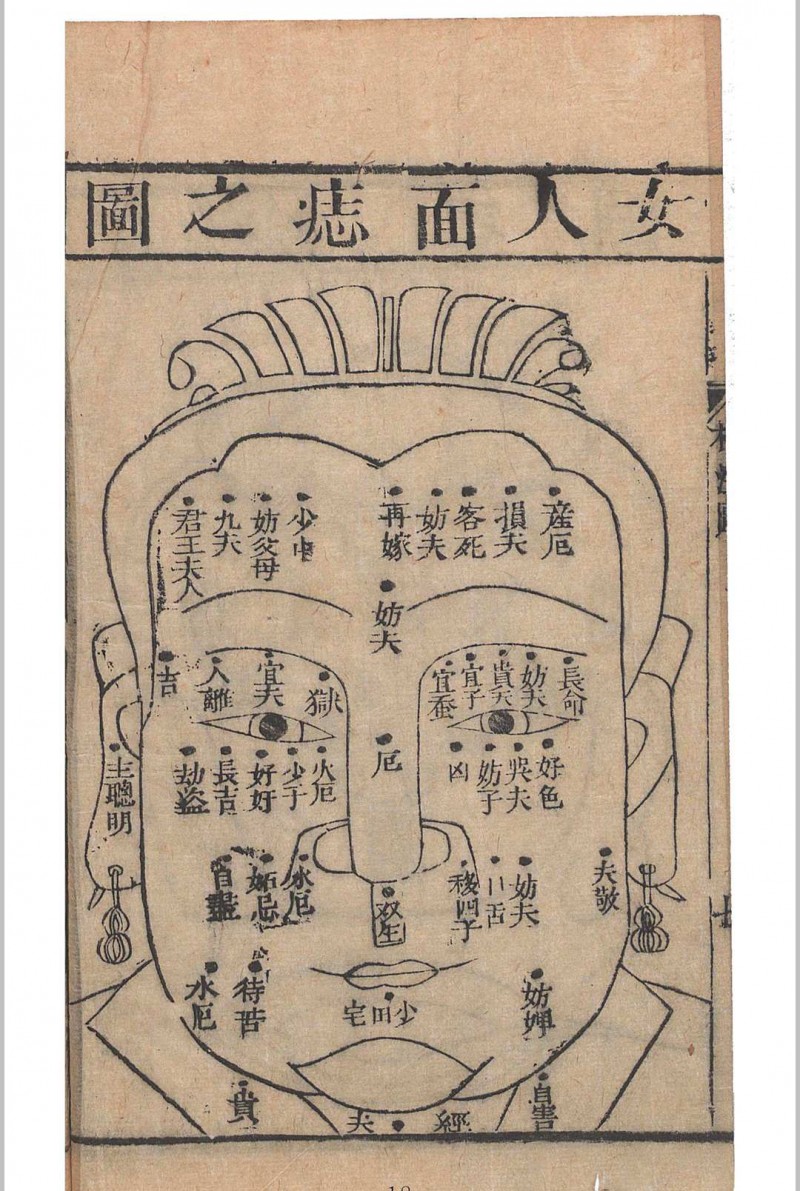 女人面痣之圖
産厄
損夫
客死
妨夫
再嫁
少
妨父母
九夫
君王夫人
妨夫
長命
妨夫
貴夫
宜子
宜蚕
獄
宜夫
人離
吉
好色
吳夫
妨子
凶
厄
火厄
少子
好奸
長吉
劫盜
主聰明
夫敬
妨夫
口舌
四子
双生
水厄
妬忌
自盡
妨婢
少田宅
水厄
自害
經夫
貴